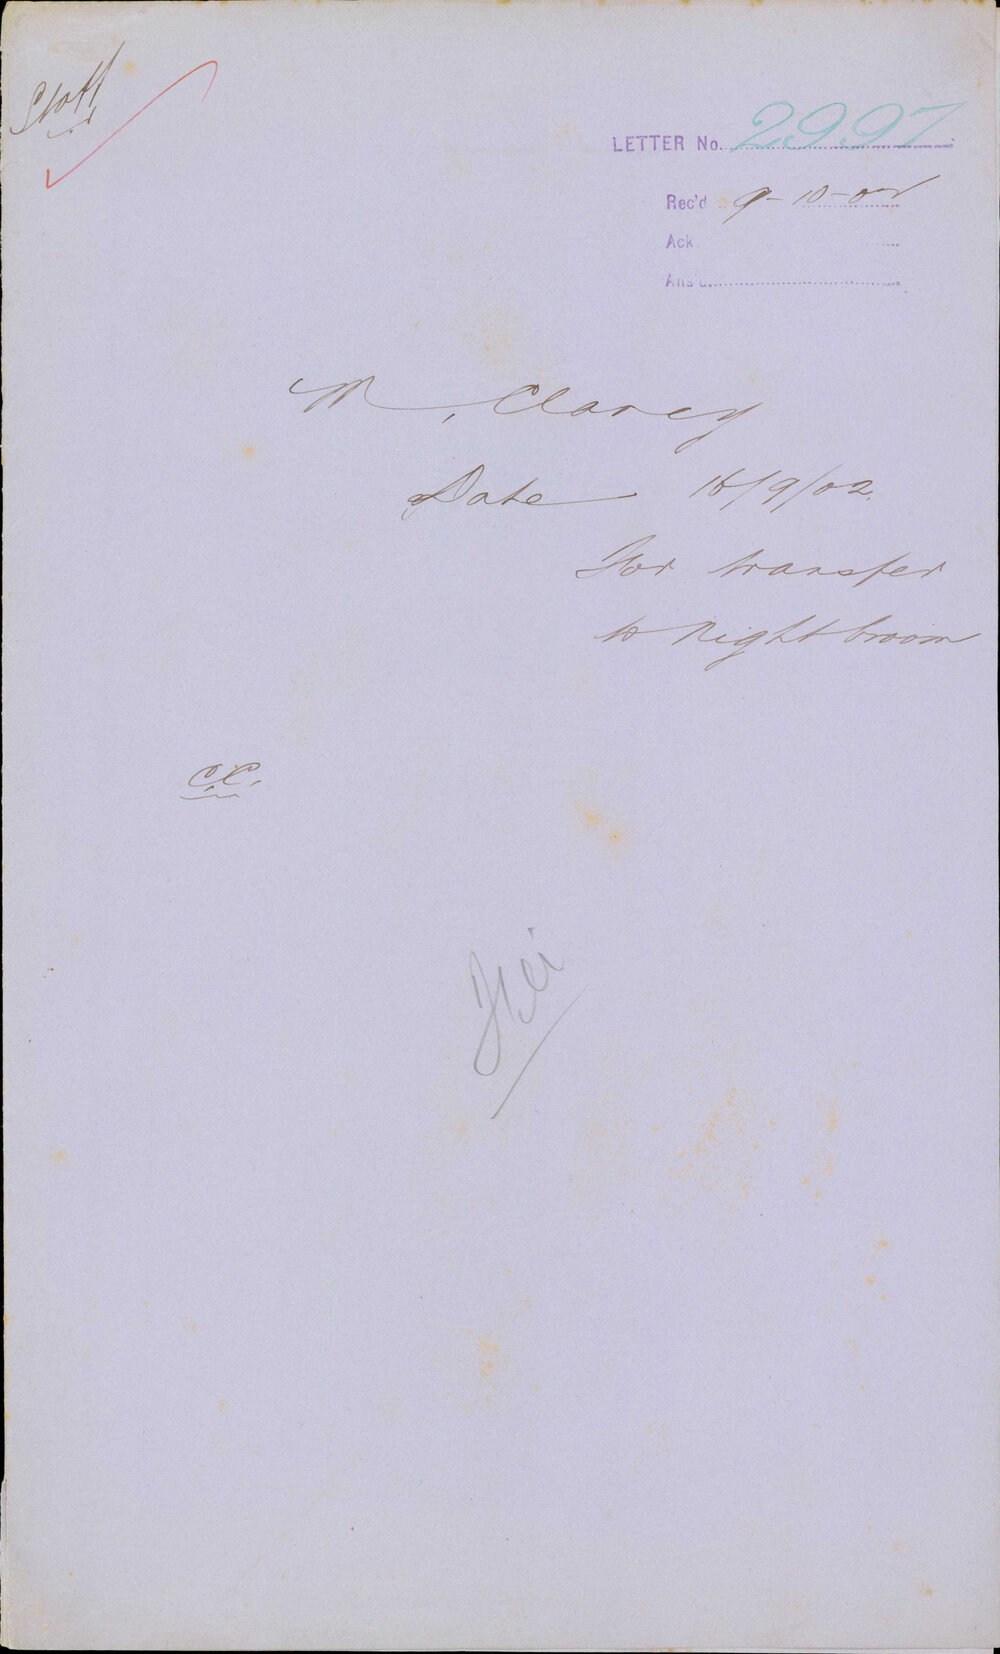 Staff
LETTER No. 2997
Rec'd 9-10-02
Ack
Ans'd
M, Clarey
Date 16/9/02.
For transfer
to Night broom
C.C.